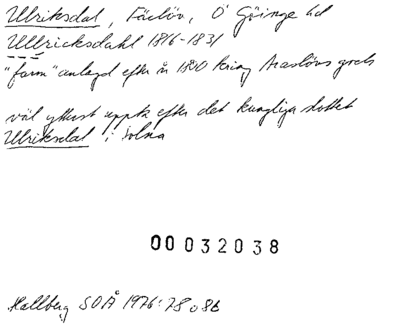 Ulriksdal, Färlöv, Ö Göinge hd
Ullricksdahl 1816-1831
"farm" anlagd efter år 1800 kring Araslövs gods
väl ytterst uppk efter det kungliga slottet
Ulriksdal i Solna
00032038
Hallberg SOÅ 1976: 78 o 86